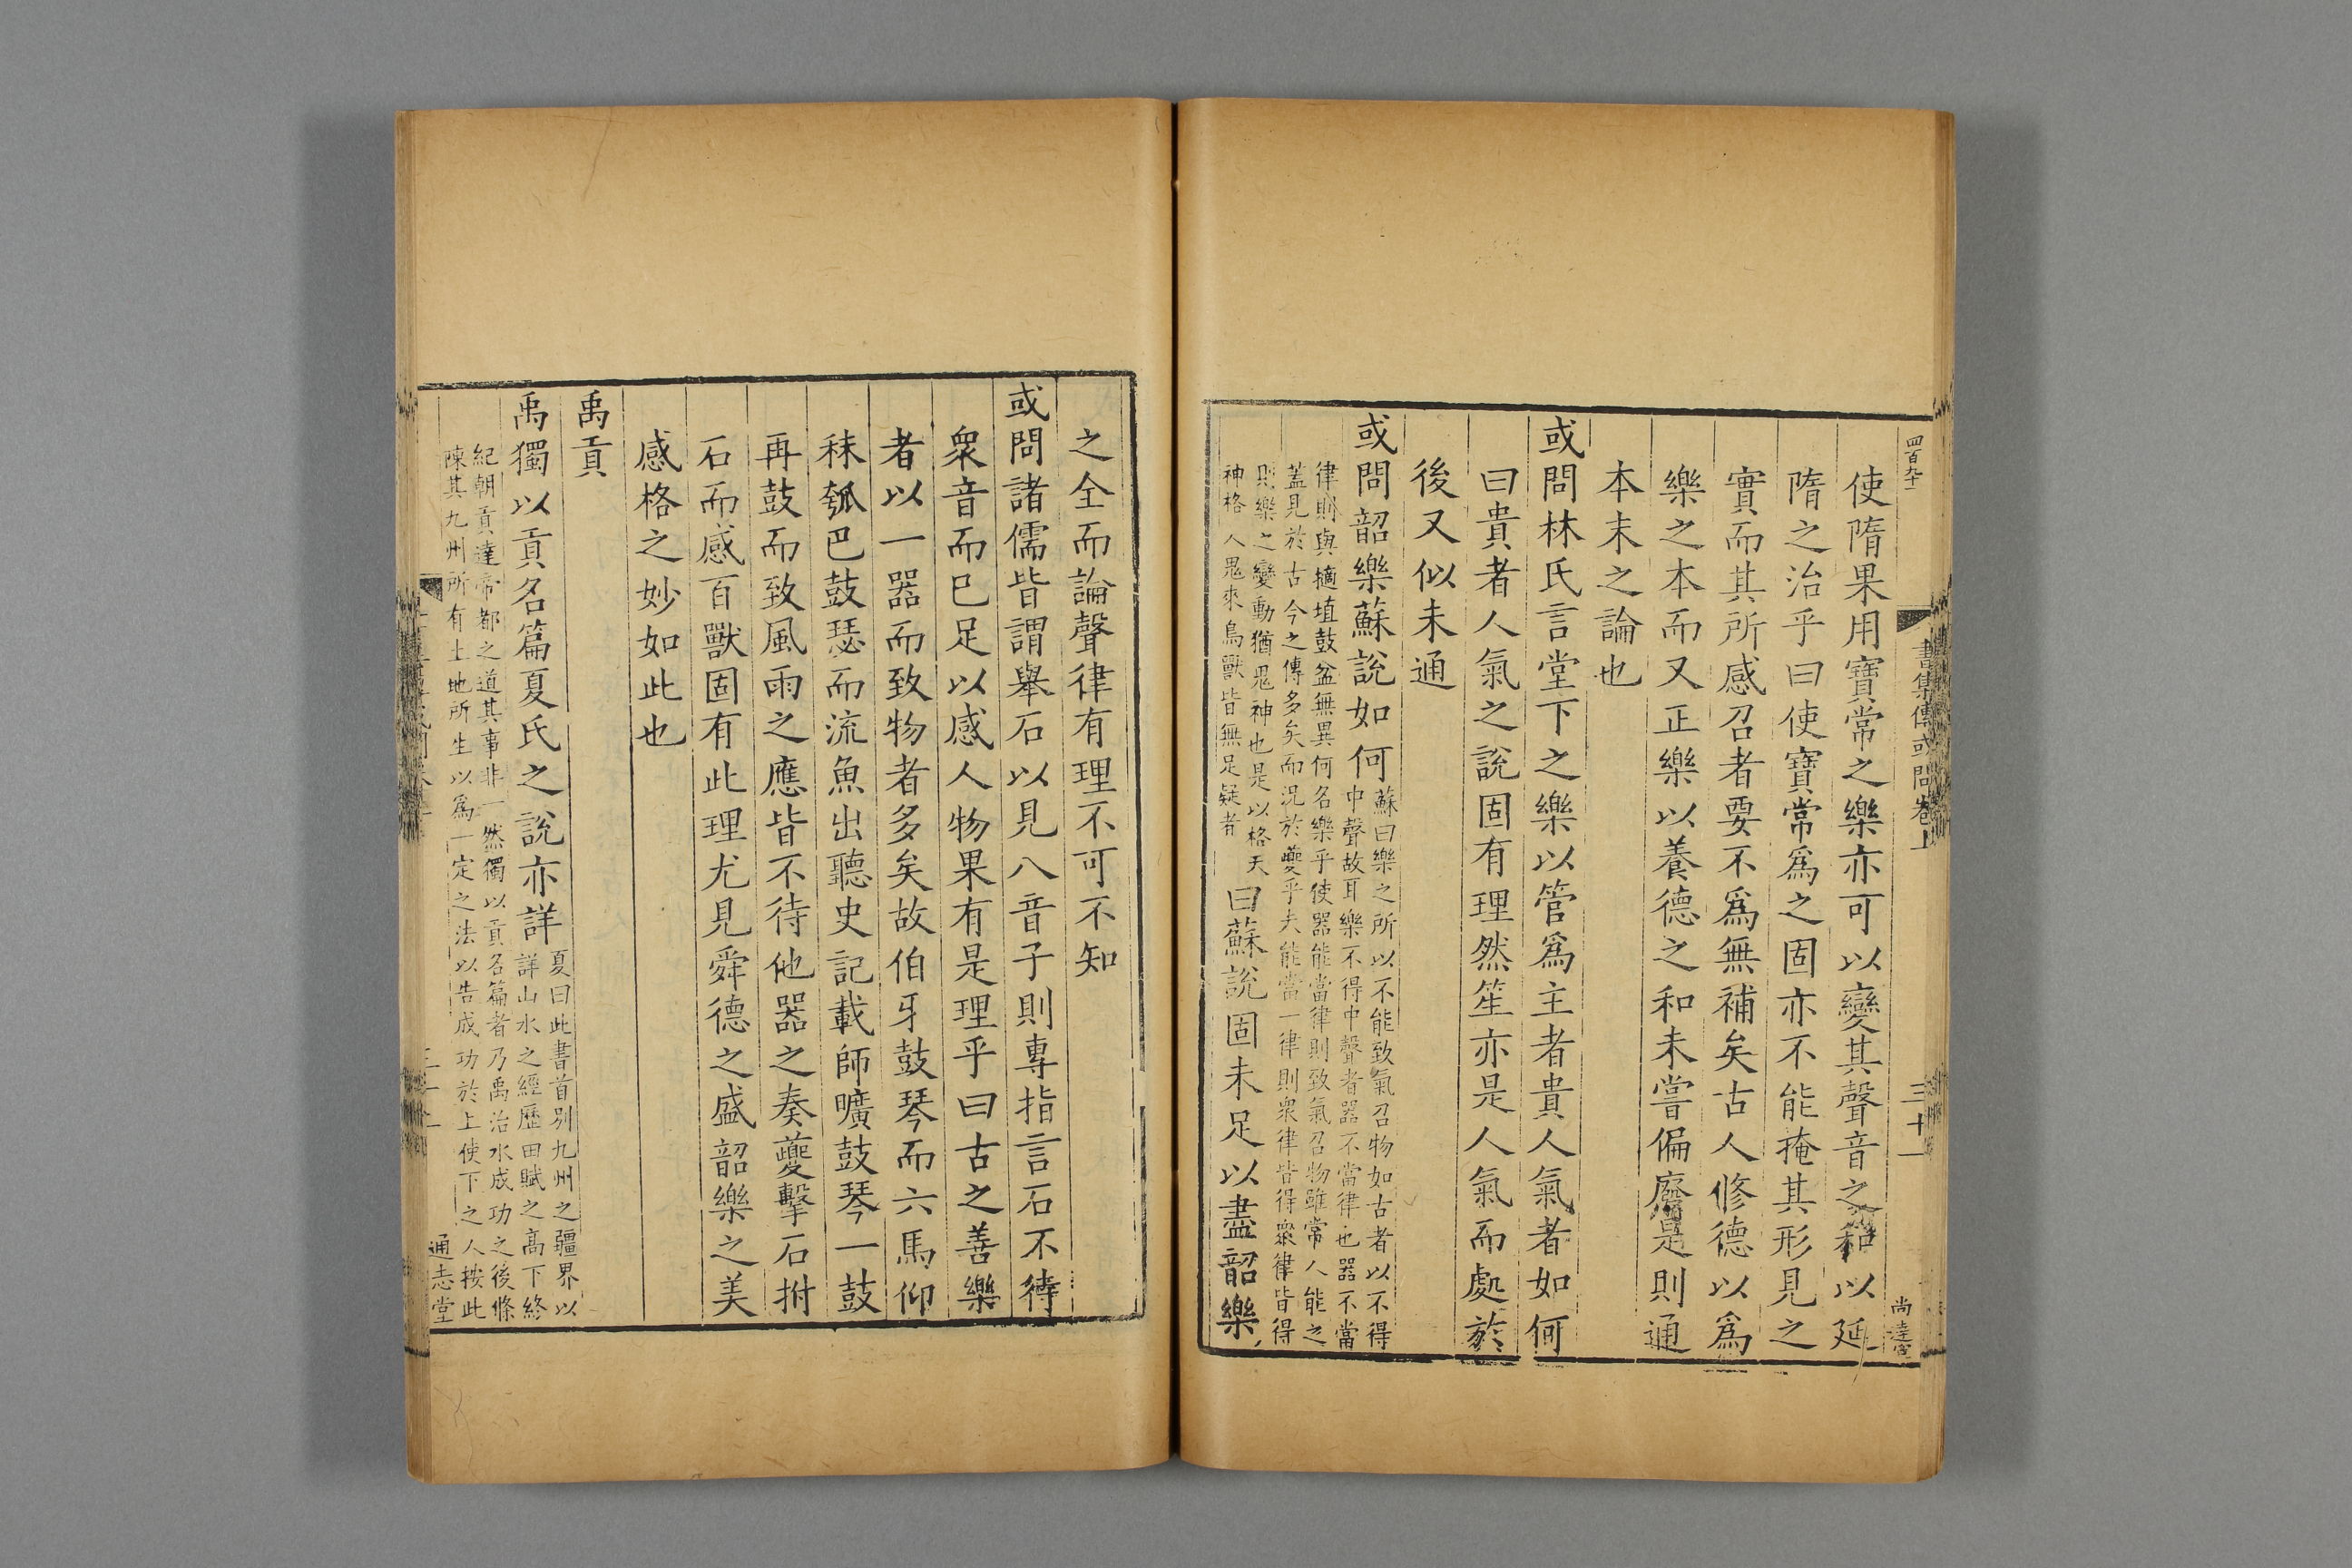 四百九十一
書集傳或問卷上
三十一
使隋果用寶常之樂亦可以變其聲音之和以延
隋之治乎曰使寶常爲之固亦不能掩其形見之
實而其所感召者要不爲無補矣古人修德以爲
樂之本而又正樂以養德之和未嘗偏廢是則通
本末之論也
或問林氏言堂下之樂以管爲主者貴人氣者如何
曰貴者人氣之說固有理然笙亦是人氣而處於
後又似未通
或問韶樂蘇說如何
蘇曰樂之所以不能致氣召物如古者以不得
中聲故耳樂不得中聲者器不當律也器不當
律則與擿埴鼓盆無異何名樂乎使器能當律則致氣召物雖常人能之
蓋見於古今之傳多矣而況於夔乎夫能當一律則衆律皆得衆律皆得
則樂之變動猶鬼神也是以格天
神格人鬼來鳥獸皆無足疑者
曰蘇說固未足以盡韶樂
之全而論聲律有理不可不知
或問諸儒皆謂舉石以見八音子則專指言石不待
衆音而已足以感人物果有是理乎曰古之善樂
者以一器而致物者多矣故伯牙鼓琴而六馬仰
秣瓠巴鼓瑟而流魚出聽史記載師曠鼓琴一鼓
再鼓而致風雨之應皆不待他器之奏夔擊石拊
石而感百獸固有此理尤見舜德之盛韶樂之美
感格之妙如此也
禹貢
禹獨以貢名篇夏氏之說亦詳
夏曰此書首別九州之疆界以
詳山水之經歷田賦之高下終
紀朝貢達帝都之道其事非一然獨以貢名篇者乃禹治水成功之後條
陳其九州所有土地所生以爲一定之法以告成功於上使下之人按此
通志堂